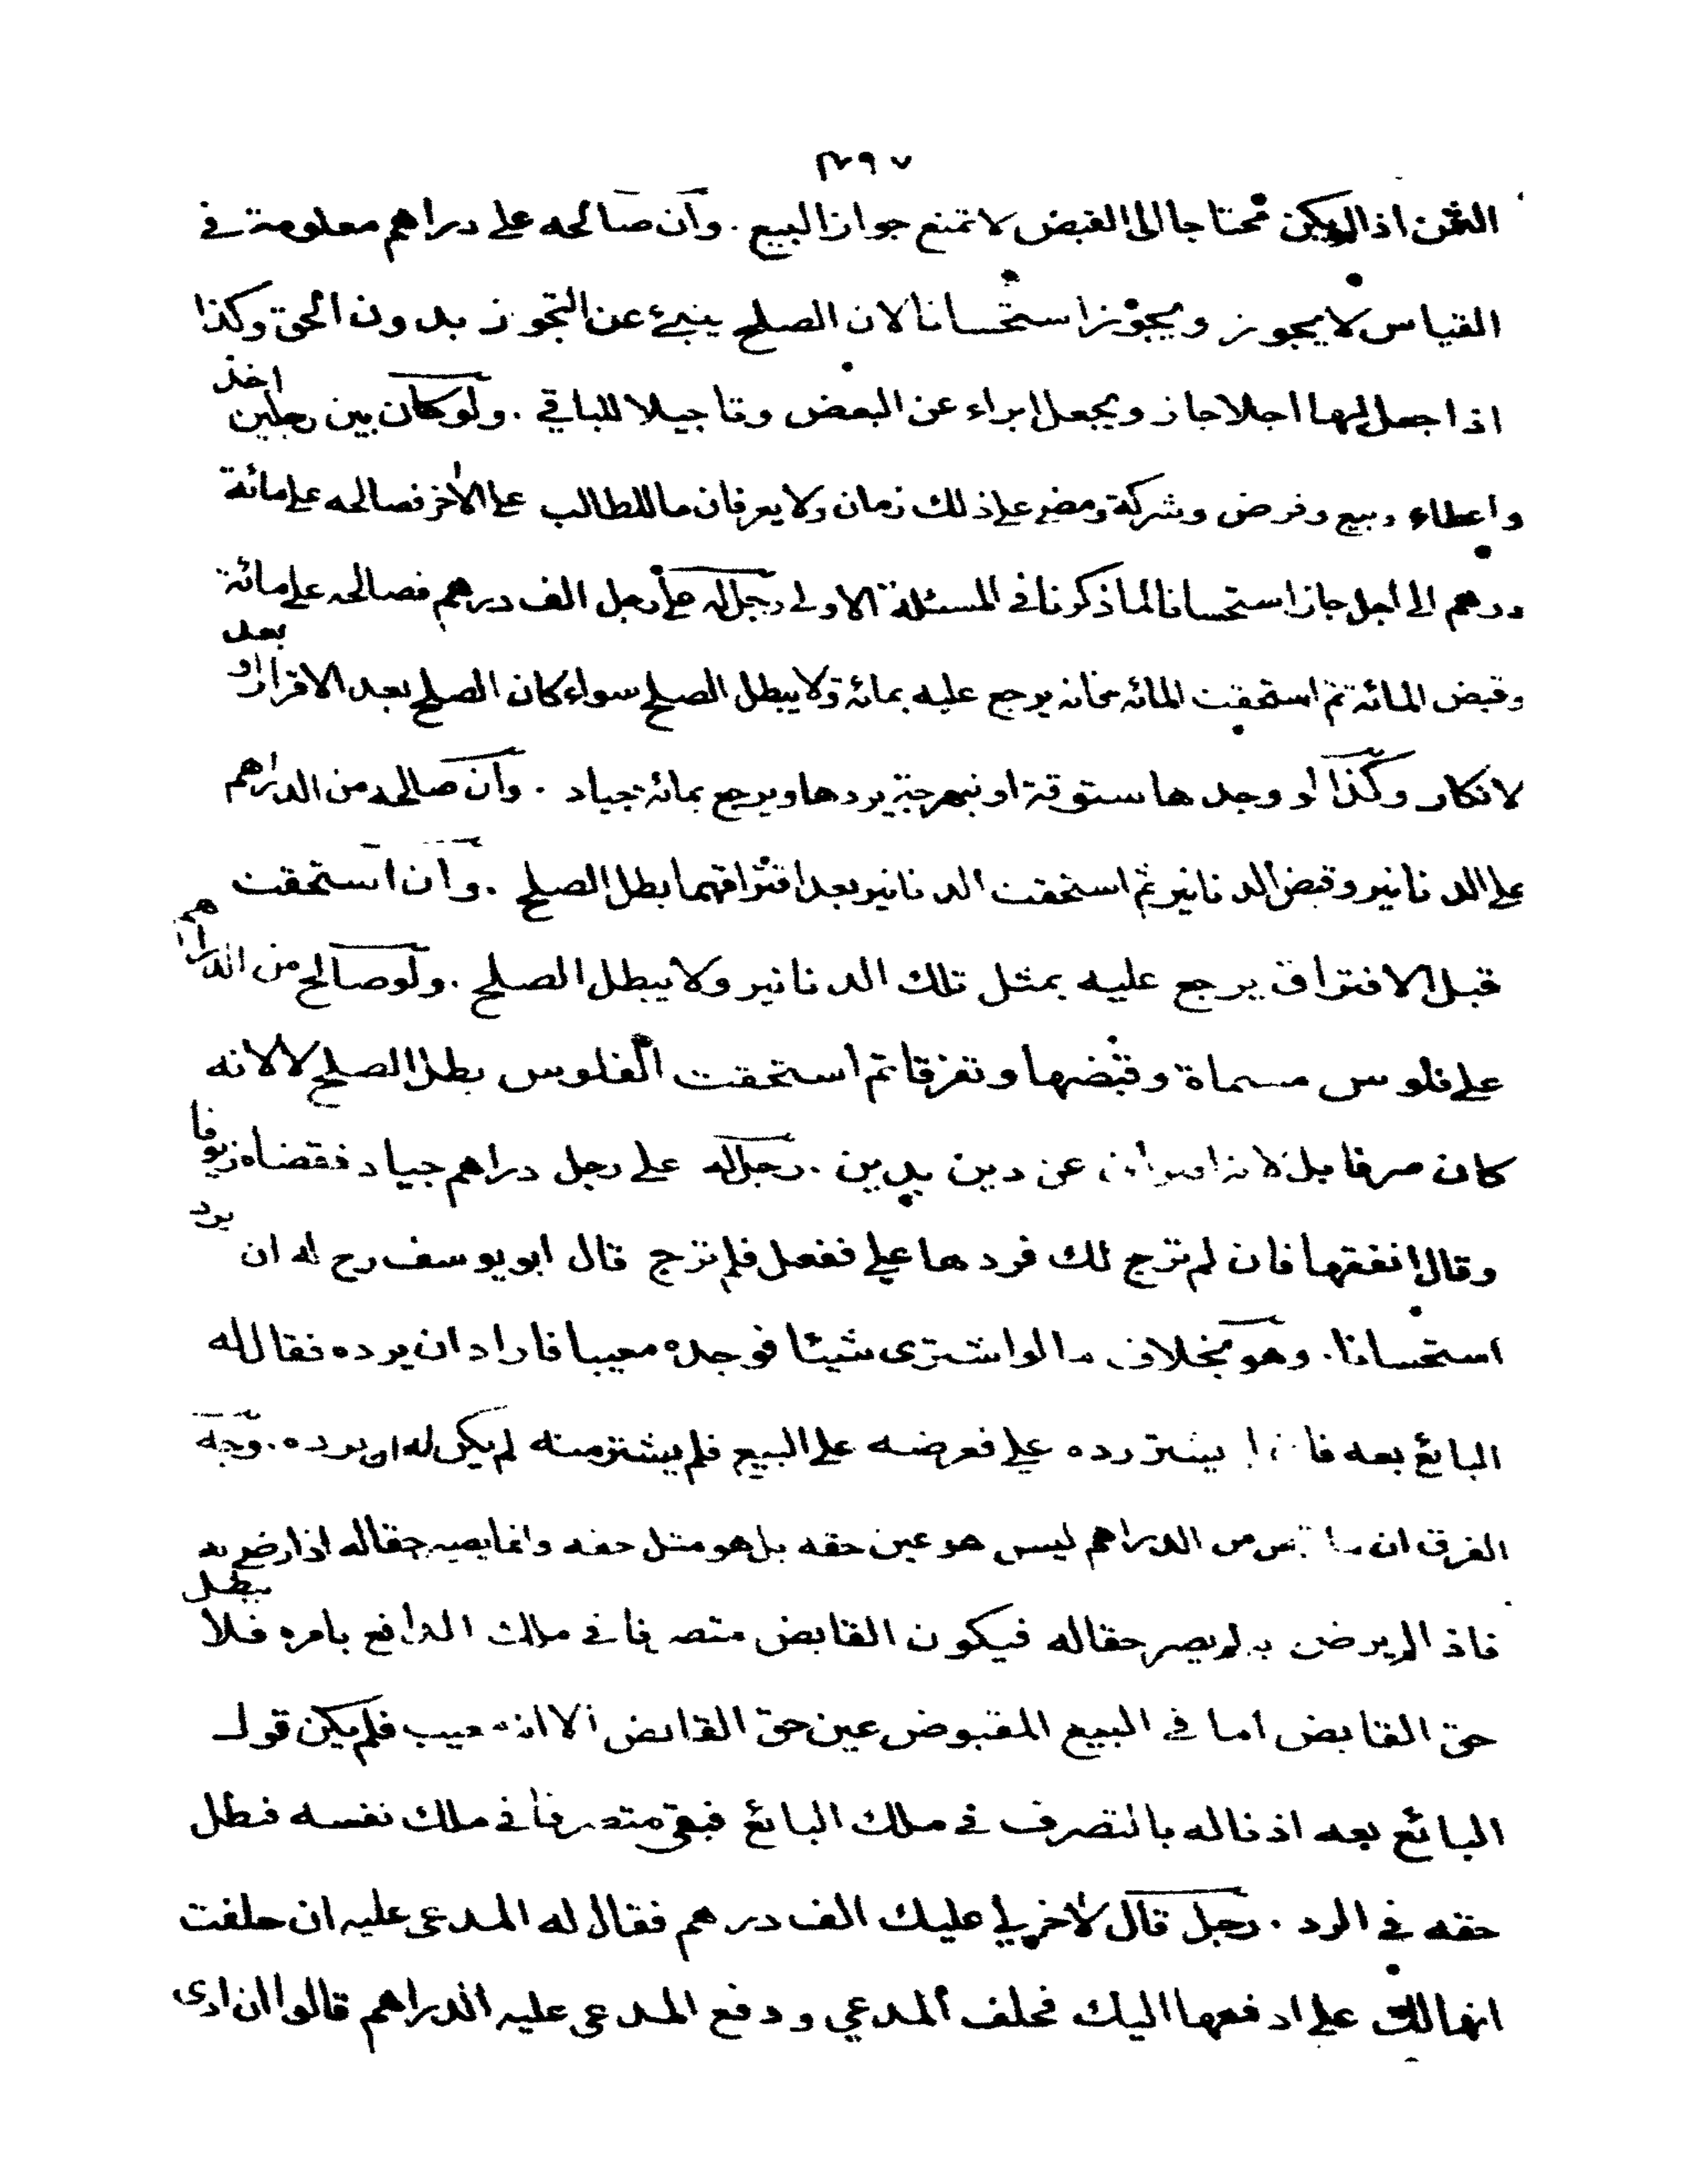 ٣٩٧
الثمن اذا لم يكن محتاجا الى القبض لا تمنع جواز البيع . وان صالحه على دراهم معلومة في
القياس لا يجوز ويجوز استحسانا لان الصلح ينبئ عن التجوز بدون الحق وكذا
اذا جعل لها اجلا جاز ويجعل ابراء عن البعض وتاجيلا للباقي . ولو كان بين رجلين اخذ
واعطاء وبيع وقرض وشركة ومضى على ذلك زمان ولا يعرفان ما للطالب على الاخر فصالحه على مائة
درهم الى اجل جاز استحسانا لما ذكرنا في المسئلة الاولى رجل له على رجل الف درهم فصالحه على مائة
وقبض المائة ثم استحقت المائة فانه يرجع عليه بمائة ولا يبطل الصلح سواء كان الصلح بعد الاقرار او بعد
لانكار وكذا لو وجدها ستوقة او نبهرجة يردها ويرجع بمائة جياد . وان صالحه من الدراهم
على الدنانير وقبض الدنانير ثم استحقت الدنانير بعد افتراقهما بطل الصلح . وان استحقت
قبل الافتراق يرجع عليه بمثل تلك الدنانير ولا يبطل الصلح . ولو صالح من الدراهم
على فلوس مسماة وقبضها وتفرقا ثم استحقت الفلوس بطل الصلح لا لانه
كان صرفا بل لانه عن دين بدين . رجل له على رجل دراهم جياد فقضاه زيوفا
وقال انفقها فان لم ترج لك فردها علي ففعل فلم ترج قال ابو يوسف رح له ان يرد
استحسانا . وهو بخلاف ما لو اشترى شيئا فوجده معيبا فاراد ان يرده فقال له
البائع بعه فان لم يشتر رده علي فعرضه على البيع فلم يشتر منه لم يكن له ان يرده . وجه
الفرق ان ما من الدراهم ليس هو عين حقه بل هو مثل حقه وانما يصير حقا له اذا رضي به
فاذا لم يرض به لم يصر حقا له فيكون القابض متصرفا في ملك الدافع بامره فلا يبطل
حق القابض اما في البيع المقبوض عين حق القابض الا انه معيب فلم يكن قول
البائع بعه اذنا له بالتصرف في ملك البائع فبقي متصرفا في ملك نفسه فبطل
حقه في الرد . رجل قال لاخر لي عليك الف درهم فقال له المدعى عليه ان حلفت
انها لك علي ادفعها اليك فحلف المدعي ودفع المدعى عليه الدراهم قالوا ان ادى